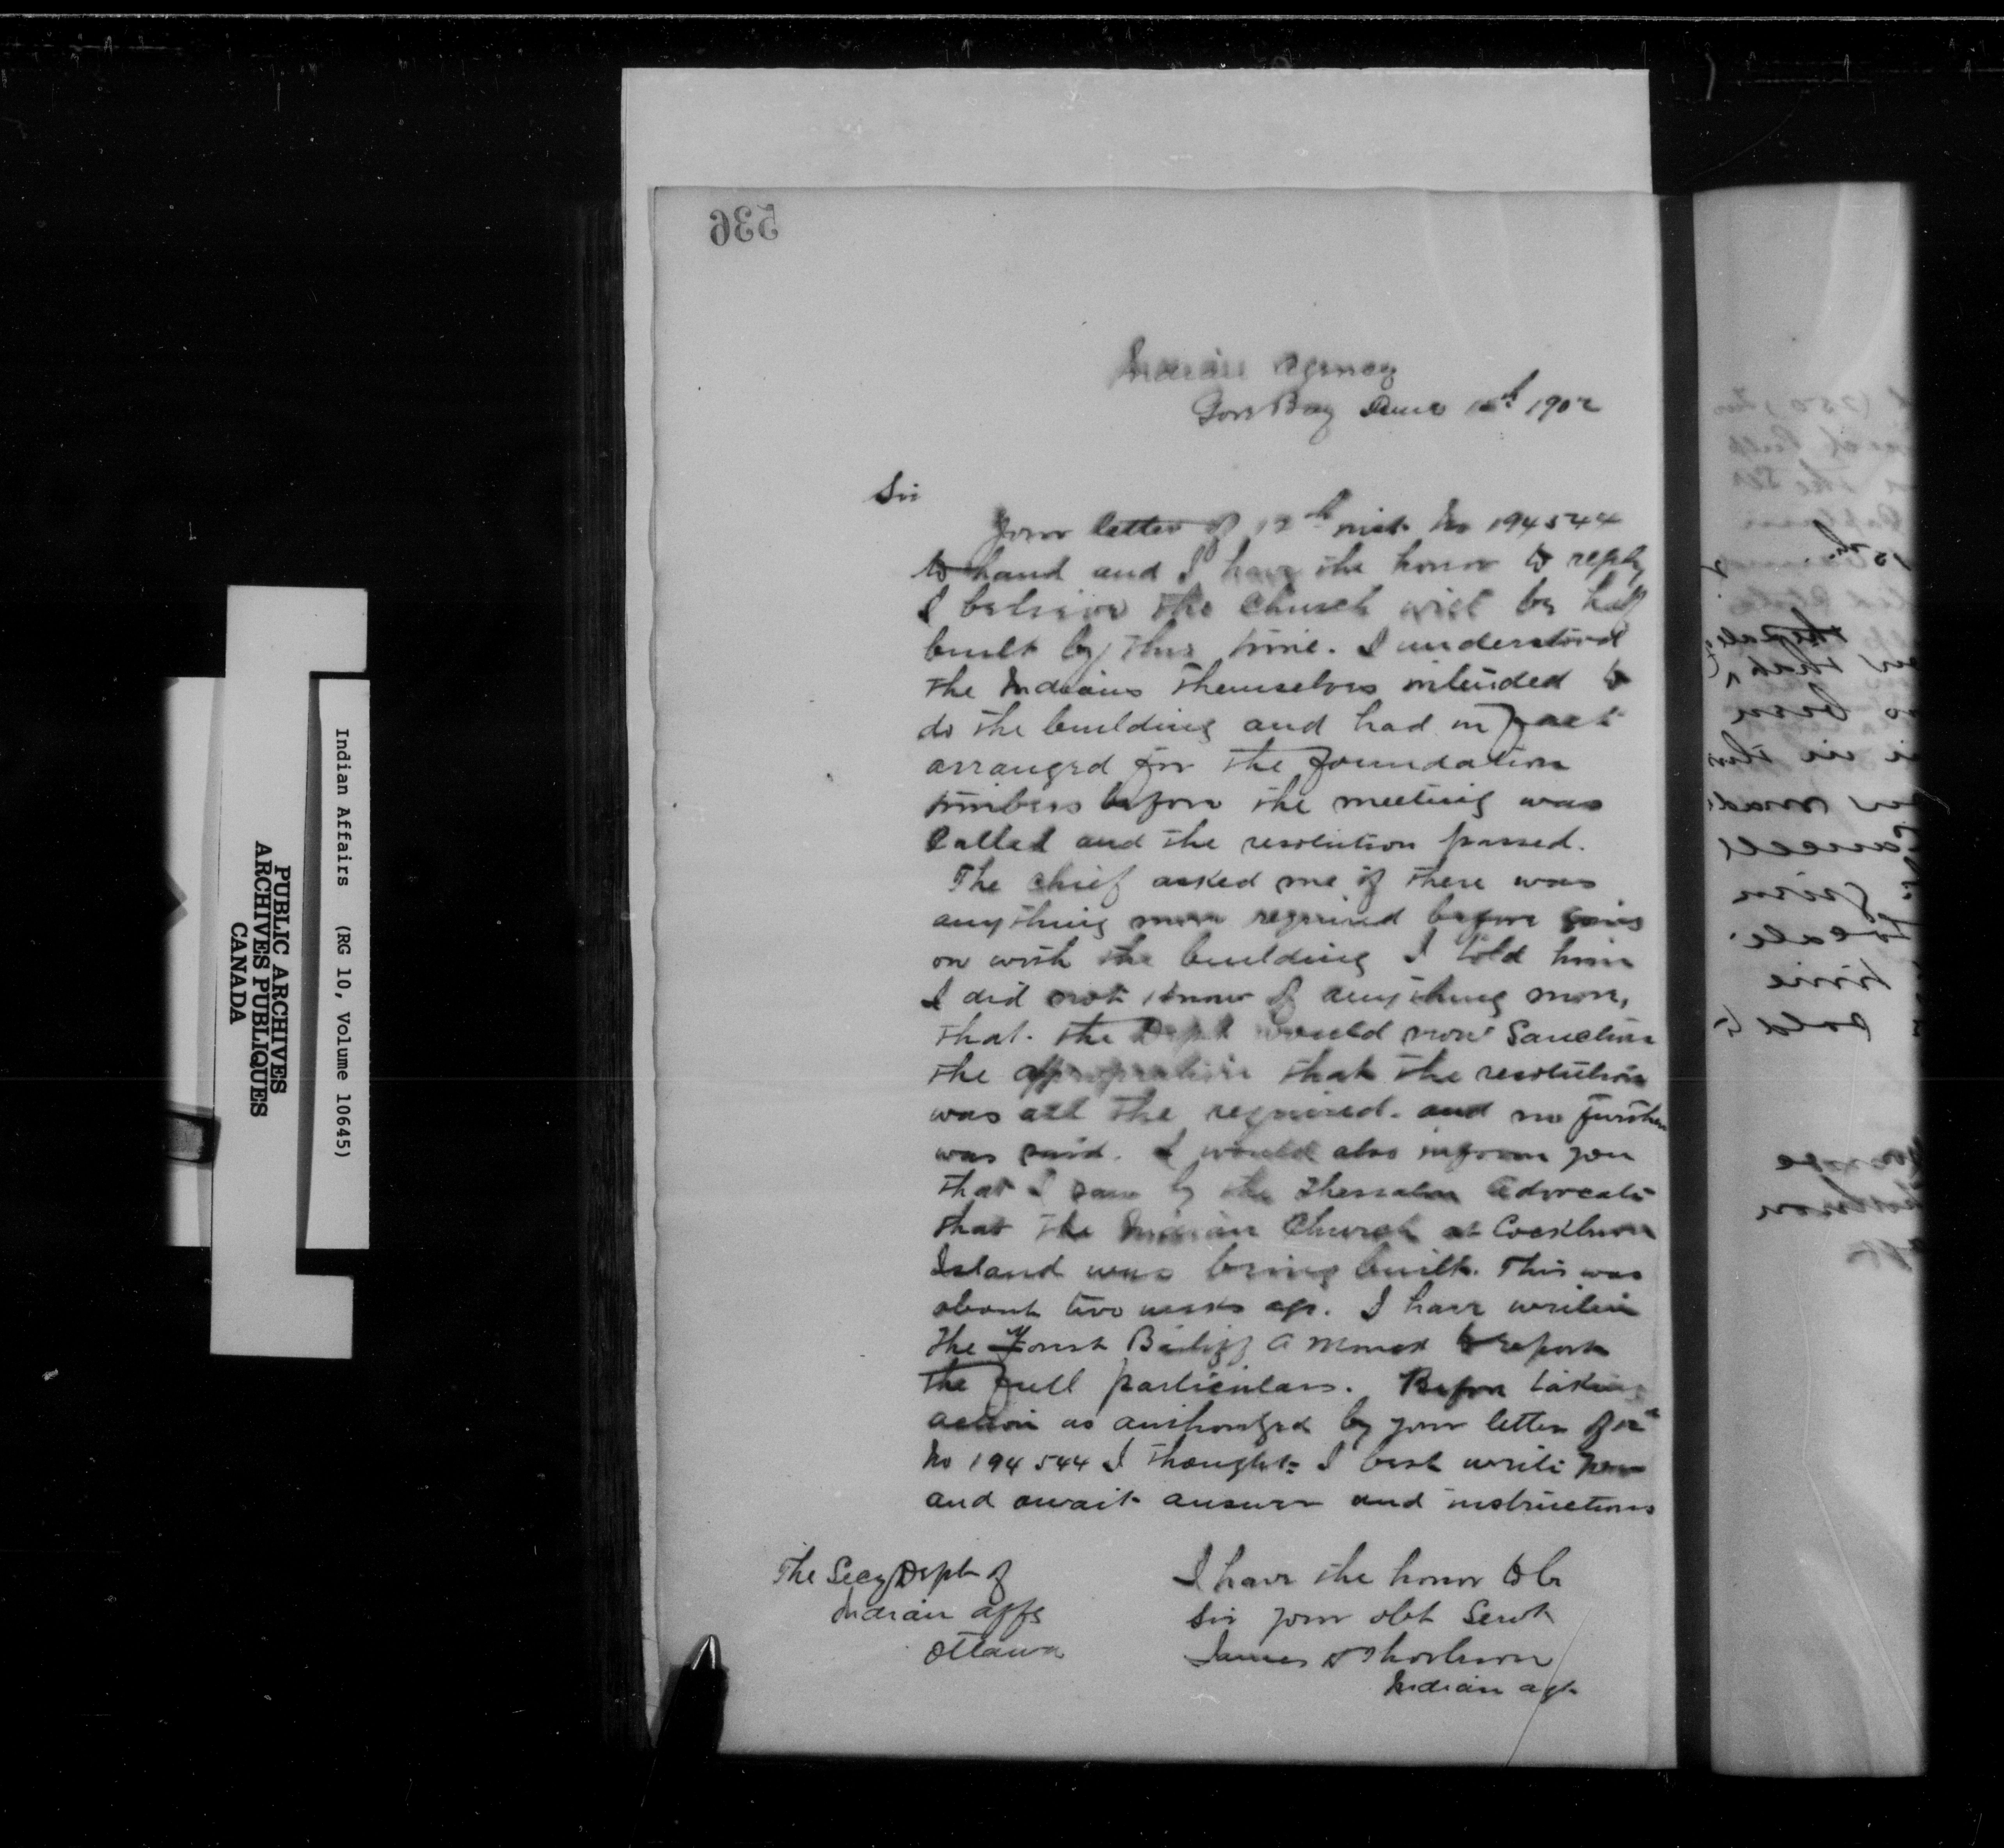 536
Indian Agency
Gore Bay June 1902
Sir
Your letter of 12th inst. No 194544
to hand and I have the honor to reply
I believe the Church will be half
built by this time. I understood
the Indians themselves intended to
do the building and had in fact
arranged for the foundation
timbers before the meeting was
Called and the resolution passed.
The chief asked me if there was
anything more required before going
on with the building I told him
I did not know of anything more,
that the Dept would now Sanction
the appropriation that the resolution
was all the required. and no further
was said. I would also inform you
that I saw by the Thessalon Advocate
that the Indian Church at Cockburn
Island was being built. This was
about two weeks ago. I have written
the Forest Bailiff to report
the full particulars. Before taking
action as authorized by your letter of
No 194544 I thought I best write you
and await answer and instructions
The Secy Dept of
Indian Affs
Ottawa
I have the honor to be
Sir your obt Servt
James Thorburn
Indian agt
Indian Affairs (RG 10, Volume 10645)
PUBLIC ARCHIVES
ARCHIVES PUBLIQUES
CANADA